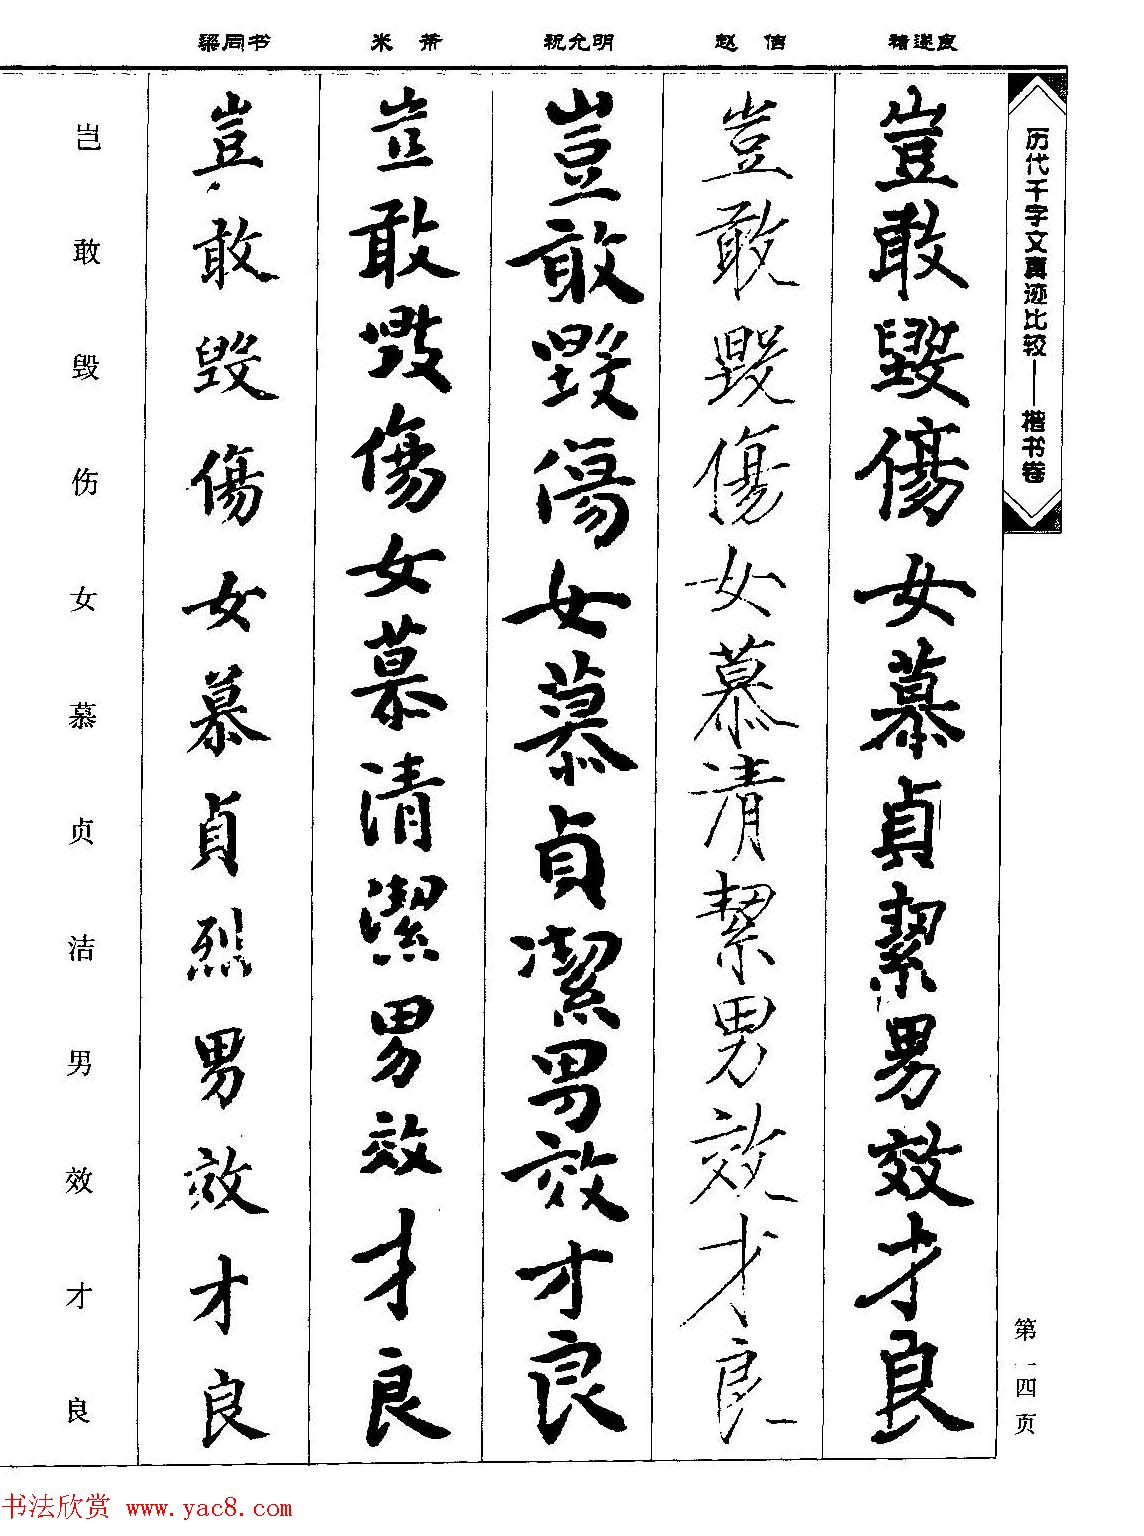 褚遂良
赵佶
祝允明
米芾
梁同书
历代千字文真迹比较——楷书卷
第一四页
豈敢毀傷女慕貞絜男效才良
豈敢毀傷女慕清絜男效才良
豈敢毀傷女慕貞潔男效才良
豈敢毀傷女慕清潔男效才良
豈敢毀傷女慕貞烈男效才良
岂敢毁伤女慕贞洁男效才良
书法欣赏 www.yac8.com